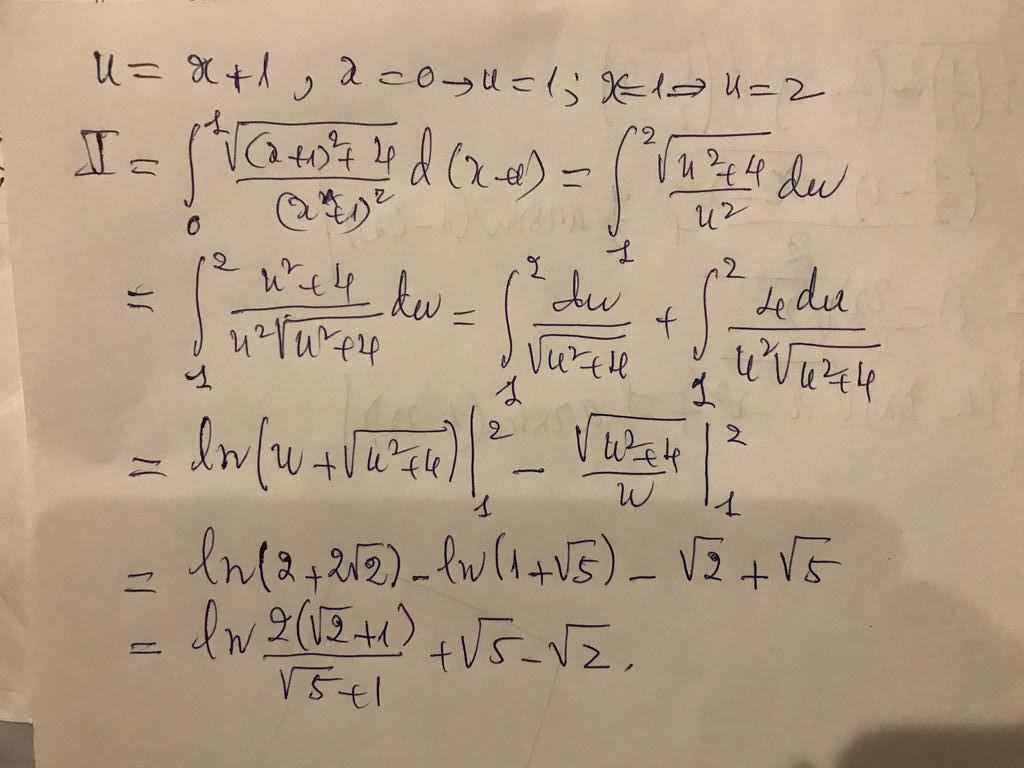 u = x+1, x=0 → u=1; x=1 ⇒ u=2
I = ∫₀¹ √((x+1)²+4)/(x+1)² d(x+1) = ∫₁² √(u²+4)/u² du
= ∫₁² (u²+4)/(u²√(u²+4)) du = ∫₁² du/√(u²+4) + ∫₁² 4du/(u²√(u²+4))
= ln(u+√(u²+4))|₁² − √(u²+4)/u |₁²
= ln(2+2√2) − ln(1+√5) − √2 + √5
= ln 2(√2+1)/(√5+1) + √5 − √2.